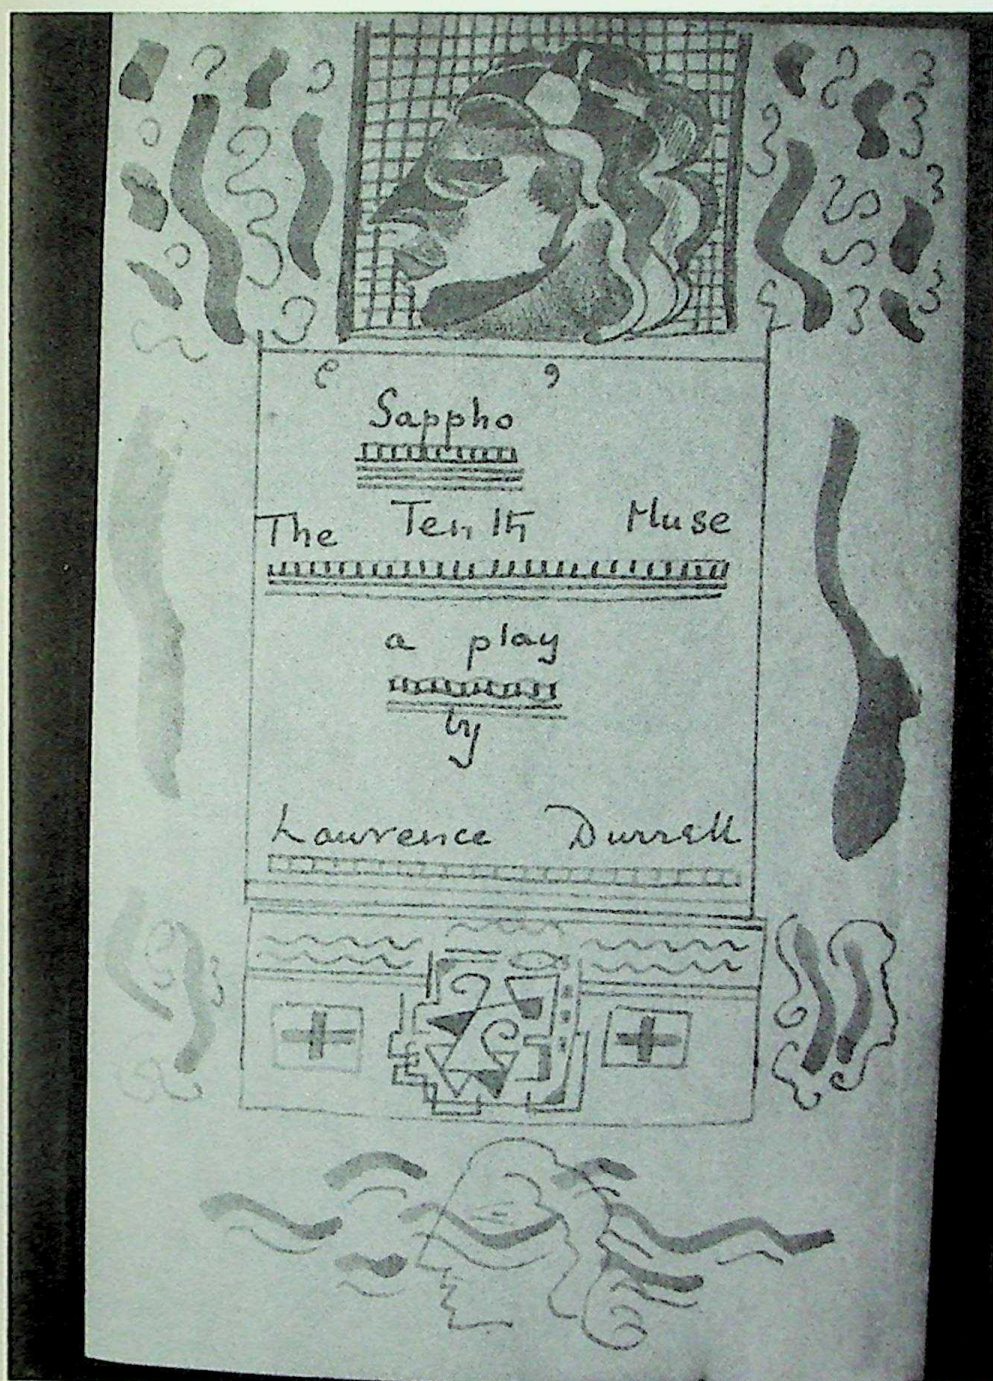 Sappho
The Tenth Muse
a play
by
Lawrence Durrell